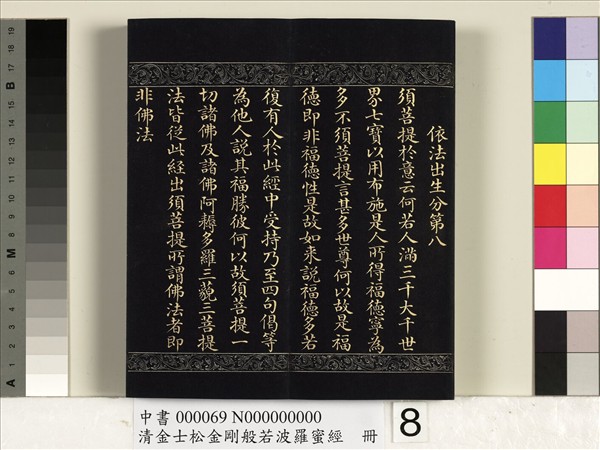 依法出生分第八
須菩提於意云何若人滿三千大千世
界七寶以用布施是人所得福德寧為
多不須菩提言甚多世尊何以故是福
德即非福德性是故如来說福德多若
復有人於此經中受持乃至四句偈等
為他人說其福勝彼何以故須菩提一
切諸佛及諸佛阿耨多羅三藐三菩提
法皆從此經出須菩提所謂佛法者即
非佛法
中書 000069 N000000000
清金士松金剛般若波羅蜜經 冊
8
19
18
17
16
15
14
13
12
11
10
9
8
7
6
5
4
3
2
1
B
M
A